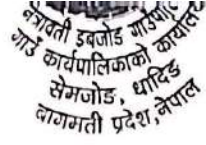 त्रिपुरावती डबजोङ गाउँपालिका
गाउँ कार्यपालिकाको कार्यालय
सेमजोङ, धादिङ
बागमती प्रदेश, नेपाल